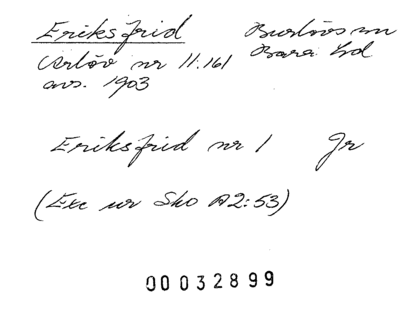 Eriksfrid Burlövs sn
Arlöv nr 11:161 Bara hd
avs. 1903
Eriksfrid nr 1 Jr
(Exc ur Sko A2:53)
00032899